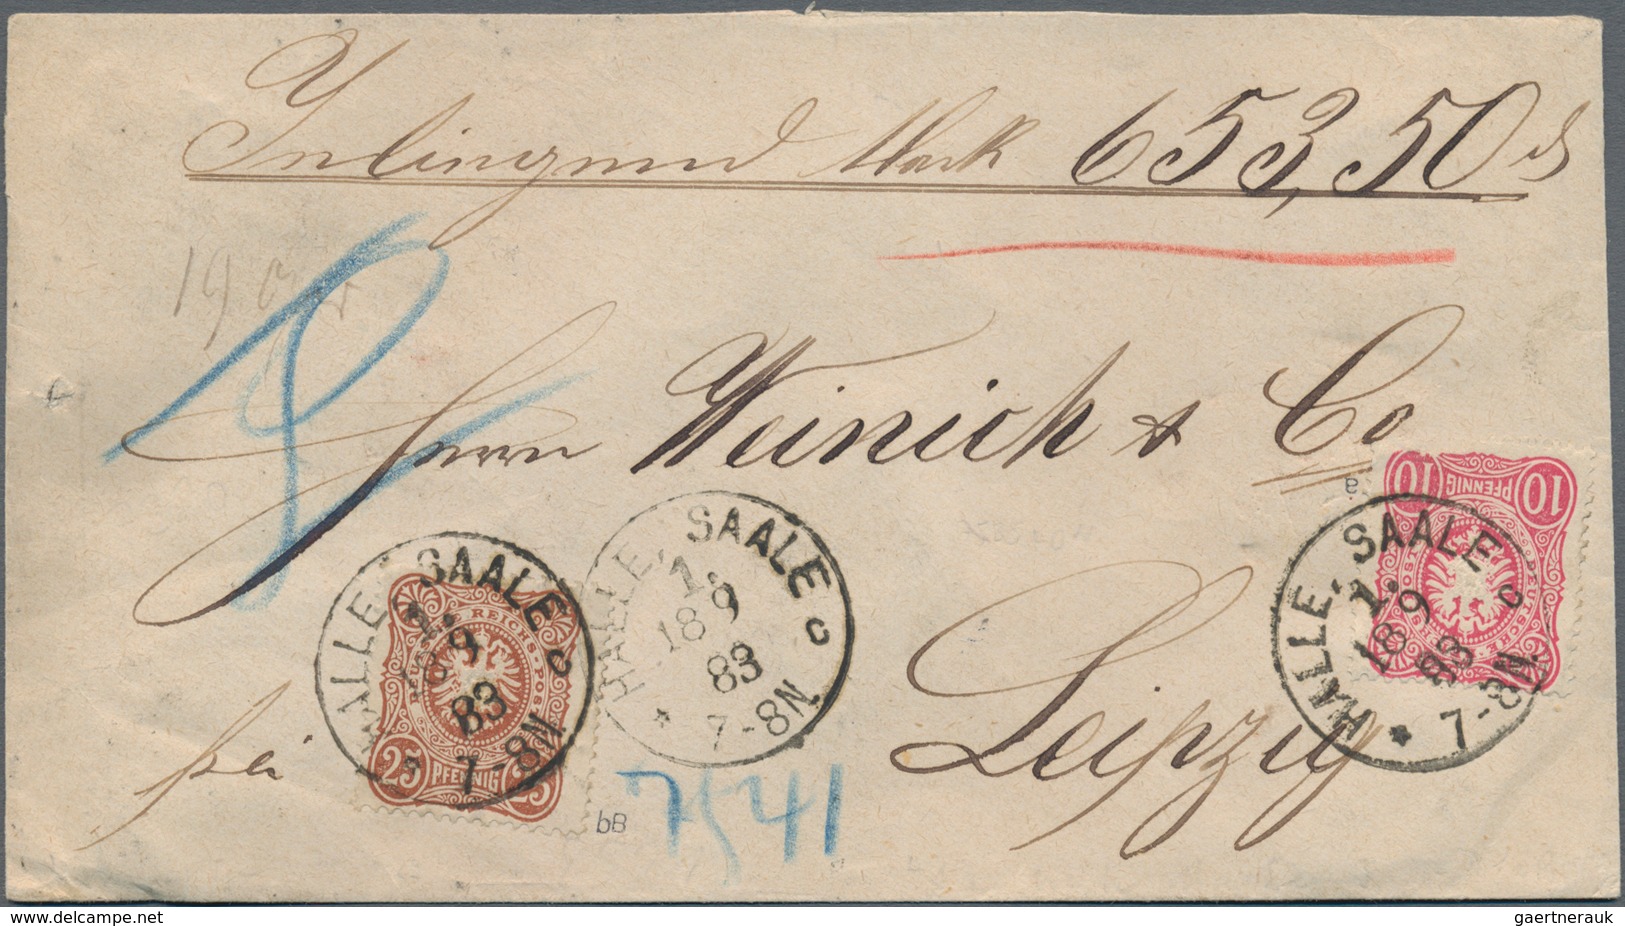 Inliegend Mark 653,50 ₰
19 gr
Herrn Weinich & Co
Leipzig
frei
7541
HALLE, SAALE
1.
18 9
83
7-8N
c
*
HALLE, SAALE
1.
18 9
83
7-8N
c
*
HALLE, SAALE
1.
18 9
83
7-8N
c
*
10 PFENNIG 10
DEUTSCHE REICHS-POST
DEUTSCHE REICHS-POST
25 PFENNIG 25
a
bB
gaertnerauk@delcampe.net